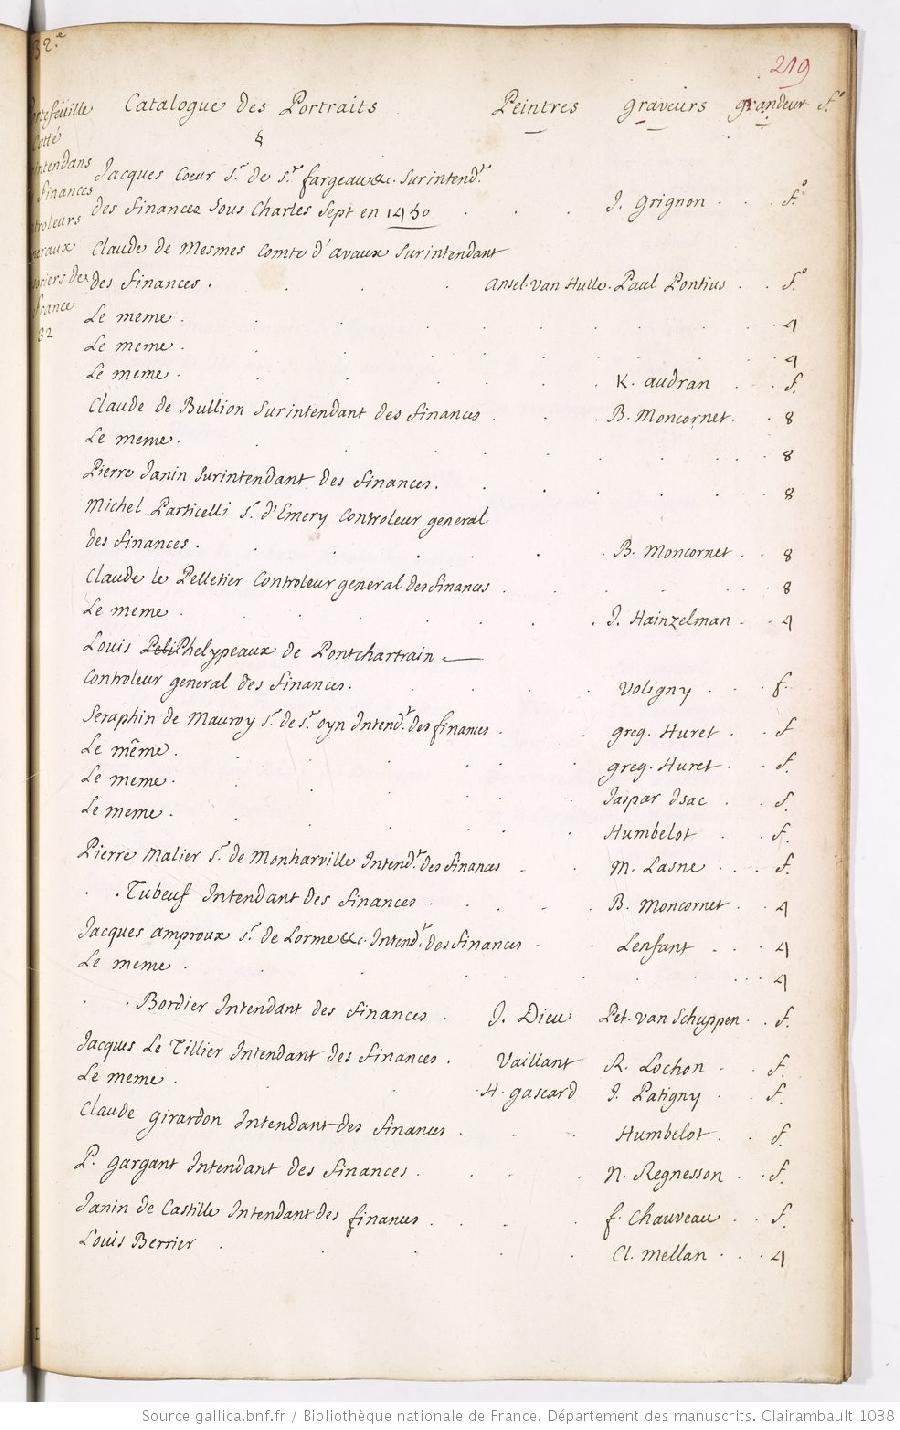 32.e
219
Catalogue des Portraits Peintres graveurs grandeur f.o
cotté
finances
france
32
Jacques Coeur S.r de S.t fargeau &c. Surintend.t
des finances Sous Charles Sept en 1450 . . . J. Grignon . . f.o
Claude de Mesmes Comte d'avaux Surintendant
des finances . . . . Ansel. van Hulle. Paul Pontius . . f.o
Le meme . 4
Le meme . 4
Le meme . K. audran . . f.
Claude de Bullion Surintendant des finances . . B. Moncornet . . 8
Le meme . 8
Pierre Janin Surintendant des finances . 8
Michel Particelli S.r d'Emery Controleur general
des finances . B. Moncornet . . 8
Claude le Pelletier Controleur general des finances . 8
Le meme . J. Hainzelman . . 4
Louis Phelypeaux de Pontchartrain
Controleur general des finances . Voligny . . f.
Seraphin de Mauroy S.r de S.t oyn Intend.t des finances . greg. Huret . . f
Le même . greg. Huret . . f.
Le meme . Jaspar Isac . f.
Le meme . Humbelot . . f.
Pierre Malier S.r de Monharville Intend.t des finances . M. Lasne . . f.
. . Tubeuf Intendant des finances . B. Moncornet . . 4
Jacques amproux S.r de Lorme &c. Intend.t des finances . Lenfant . . 4
Le meme . 4
. . Bordier Intendant des finances . J. Dieu Pet. van Schuppen . . f.
Jacques Le Tillier Intendant des finances . Vaillant R. Lochon . f.
Le meme . H. gascard J. Patigny . f.
Claude girardon Intendant des finances . Humbelot . f.
P. gargant Intendant des finances . N. Regnesson . . f.
Janin de Castille Intendant des finances . f. Chauveau . . f.
Louis Berrier . Cl. mellan . . 4
Source gallica.bnf.fr / Bibliothèque nationale de France. Département des manuscrits. Clairambault 1038